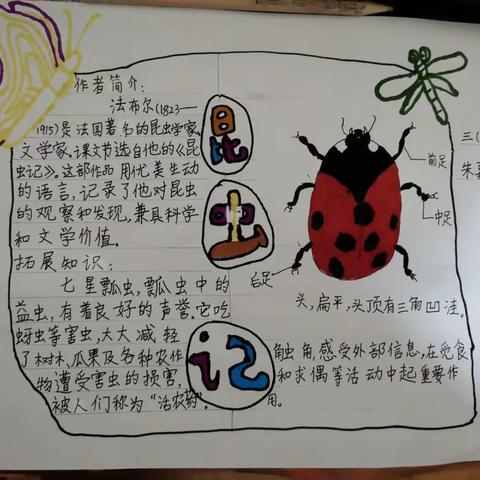 作者简介:
法布尔(1823—
1915)是法国著名的昆虫学家,
文学家.课文节选自他的《昆
虫记》,这部作品用优美生动
的语言,记录了他对昆虫
的观察和发现,兼具科学
和文学价值.
拓展知识:
七星瓢虫,瓢虫中的
益虫,有着良好的声誉.它吃
蚜虫等害虫,大大减轻
了树木,瓜果及各种农作
物遭受害虫的损害,
被人们称为“活农药”.
昆
虫
记
前足
中足
后足
头,扁平,头顶有三角凹洼.
触角,感受外部信息,在觅食
和求偶等活动中起重要作
用。
三(
朱